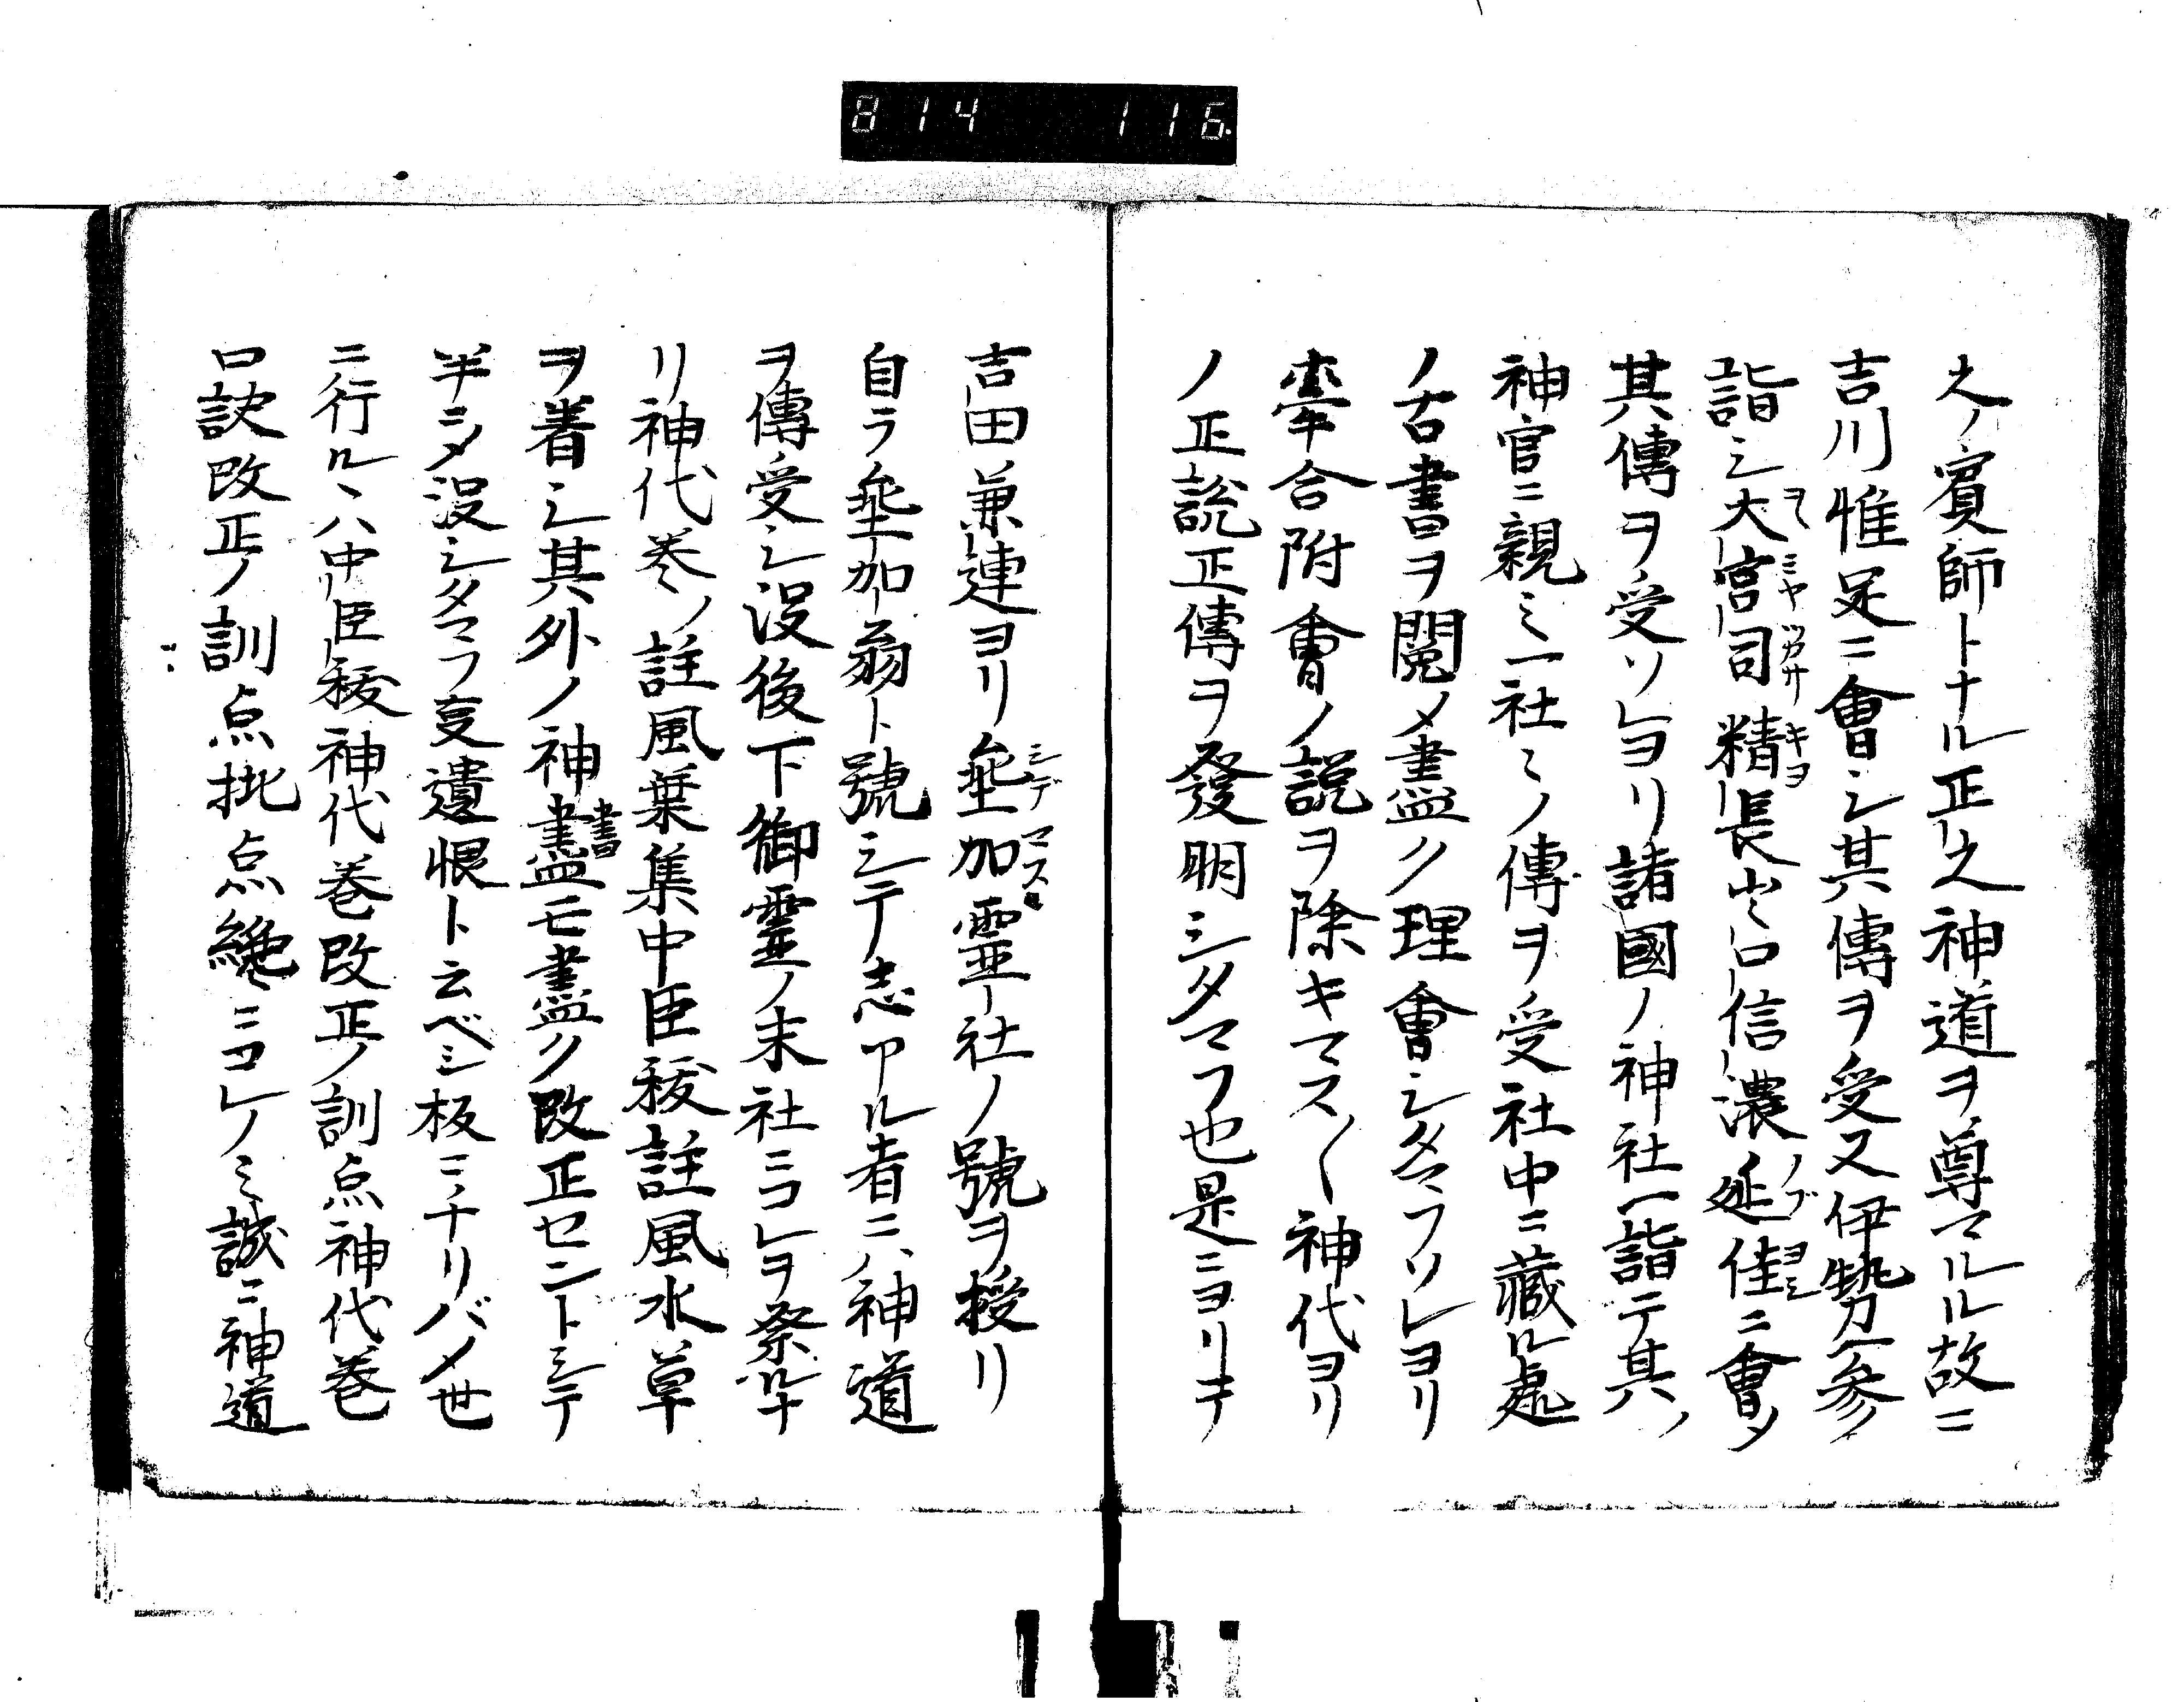 814 116
之ノ賓師トナル正之神道ヲ尊マルル故ニ
吉川惟足ニ會シ其傳ヲ受又伊勢ヘ參
詣シ大宮司精長山口信濃延佳ニ會メ
其傳ヲ受ソレヨリ諸國ノ神社ヘ詣テ其ノ
神官ニ親ミ一社ミノ傳ヲ受社中ニ藏ル處
ノ古書ヲ閲メ盡ク理會シタマフソレヨリ
牽合附會ノ説ヲ除キマス〱神代ヨリ
ノ正説正傳ヲ發明シタマフ也是ニヨリキ
吉田兼連ヨリ垂加靈社ノ號ヲ授リ
自ラ垂加翁ト號シテ志アル者ニハ神道
ヲ傳受シ没後下御靈ノ末社ニコレヲ祭ル
リ神代巻ノ註風葉集中臣秡註風水草
ヲ著シ其外ノ神書モ盡ク改正セントシテ
半ニメ没シタマフ叓遺恨ト云ベシ板ニナリバメ世
ニ行ルヽハ中臣秡神代巻改正ノ訓点神代巻
口訣改正ノ訓点批点纔ニコレノミ誠ニ神道